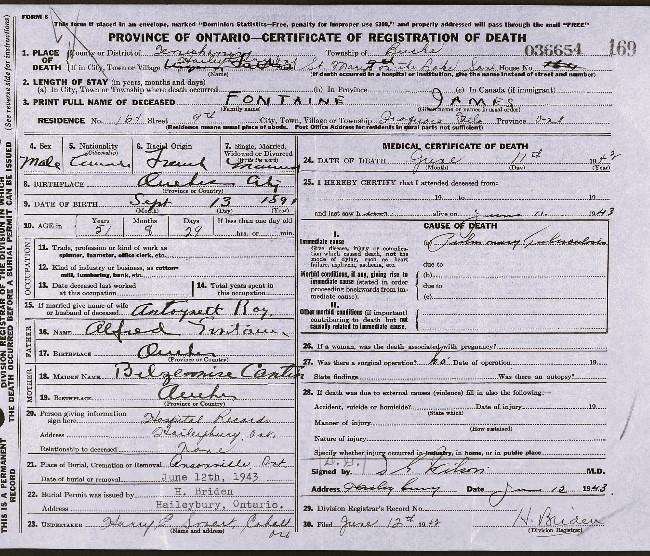 FORM 5
This form if placed in an envelope, marked "Dominion Statistics—Free, penalty for improper use $300," and properly addressed will pass through the mail "FREE"
PROVINCE OF ONTARIO—CERTIFICATE OF REGISTRATION OF DEATH
036654 169
1. PLACE OF DEATH
County or District of Township of Bucke
If in City, Town or Village (Name) House No.
(If death occurred in a hospital or institution, give the name instead of street and number)
2. LENGTH OF STAY (in years, months and days)
(a) In City, Town or Township where death occurred (b) In Province (c) In Canada (if immigrant)
3. PRINT FULL NAME OF DECEASED FONTAINE JAMES
(Family name) (Given name or names in usual order)
RESIDENCE No. 167 Street 9th City, Town, Village or Township Iroquois Falls Province Ont
(Residence means usual place of abode. Post Office Address for residents in rural parts not sufficient)
4. Sex 5. Nationality (Citizenship) 6. Racial Origin 7. Single, Married, Widowed or Divorced (Write the word)
Male French Married
8. BIRTHPLACE Quebec City
(Province or Country)
9. DATE OF BIRTH Sept 13 1891
(Month) (Day) (Year)
10. AGE Years Months Days If less than one day old
51 8 29 hrs. or min.
OCCUPATION
11. Trade, profession or kind of work as spinner, teamster, office clerk, etc.
12. Kind of industry or business, as cotton-mill, lumbering, bank, etc.
13. Date deceased last worked at this occupation 14. Total years spent in this occupation
15. If married give name of wife or husband of deceased Antoynett Roy
FATHER
16. NAME Alfred Fontaine
17. BIRTHPLACE Quebec
(Province or Country)
MOTHER
18. MAIDEN NAME Cantin
19. BIRTHPLACE Quebec
(Province or Country)
20. Person giving information sign here Hospital Record
Address Haileybury Ont.
Relationship to deceased None
21. Place of Burial, Cremation or Removal Ansonville, Ont
Date of burial or removal June 12th, 1943
22. Burial Permit was issued by H. Briden
Address Haileybury, Ontario.
23. UNDERTAKER Harry Cobalt Ont
(Name and address)
MEDICAL CERTIFICATE OF DEATH
24. DATE OF DEATH June 11th 1943
(Month) (Day) (Year)
25. I HEREBY CERTIFY that I attended deceased from:
19 to 19
and last saw h alive on June 11 1943
CAUSE OF DEATH
I.
Immediate cause
Give disease, injury or complication which caused death, not the mode of dying, such as heart failure, asphyxia, asthenia, etc.
(a) Pulmonary Tuberculosis
due to
Morbid conditions, if any, giving rise to immediate cause (stated in order proceeding backwards from immediate cause).
(b)
due to
(c)
II.
Other morbid conditions (if important) contributing to death but not causally related to immediate cause.
26. If a woman, was the death associated with pregnancy?
27. Was there a surgical operation? No Date of operation 19
State findings Was there an autopsy?
28. If death was due to external causes (violence) fill in also the following:—
Accident, suicide or homicide? Date of injury 19
(State which)
Manner of injury
(How sustained)
Nature of injury
Specify whether injury occurred in industry, in home, or in public place
Signed by Wilson M.D.
Address Haileybury Date June 12 1943
29. Division Registrar's Record No.
30. Filed June 12th 1943 H. Briden
(Division Registrar)
(See reverse side for instructions)
THE DEATH OCCURRED BEFORE A BURIAL PERMIT CAN BE ISSUED
THIS IS A PERMANENT RECORD